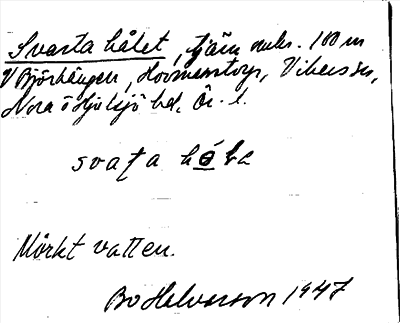 Svarta hålet, tjärn omkr. 100 m
V Björhängen, Hammarstorp, Vikers sn,
Nora o Hjulsjö bd, Ör. l.
svaṭa hó̲ḷa
Mörkt vatten.
Bo Halvarson 1947